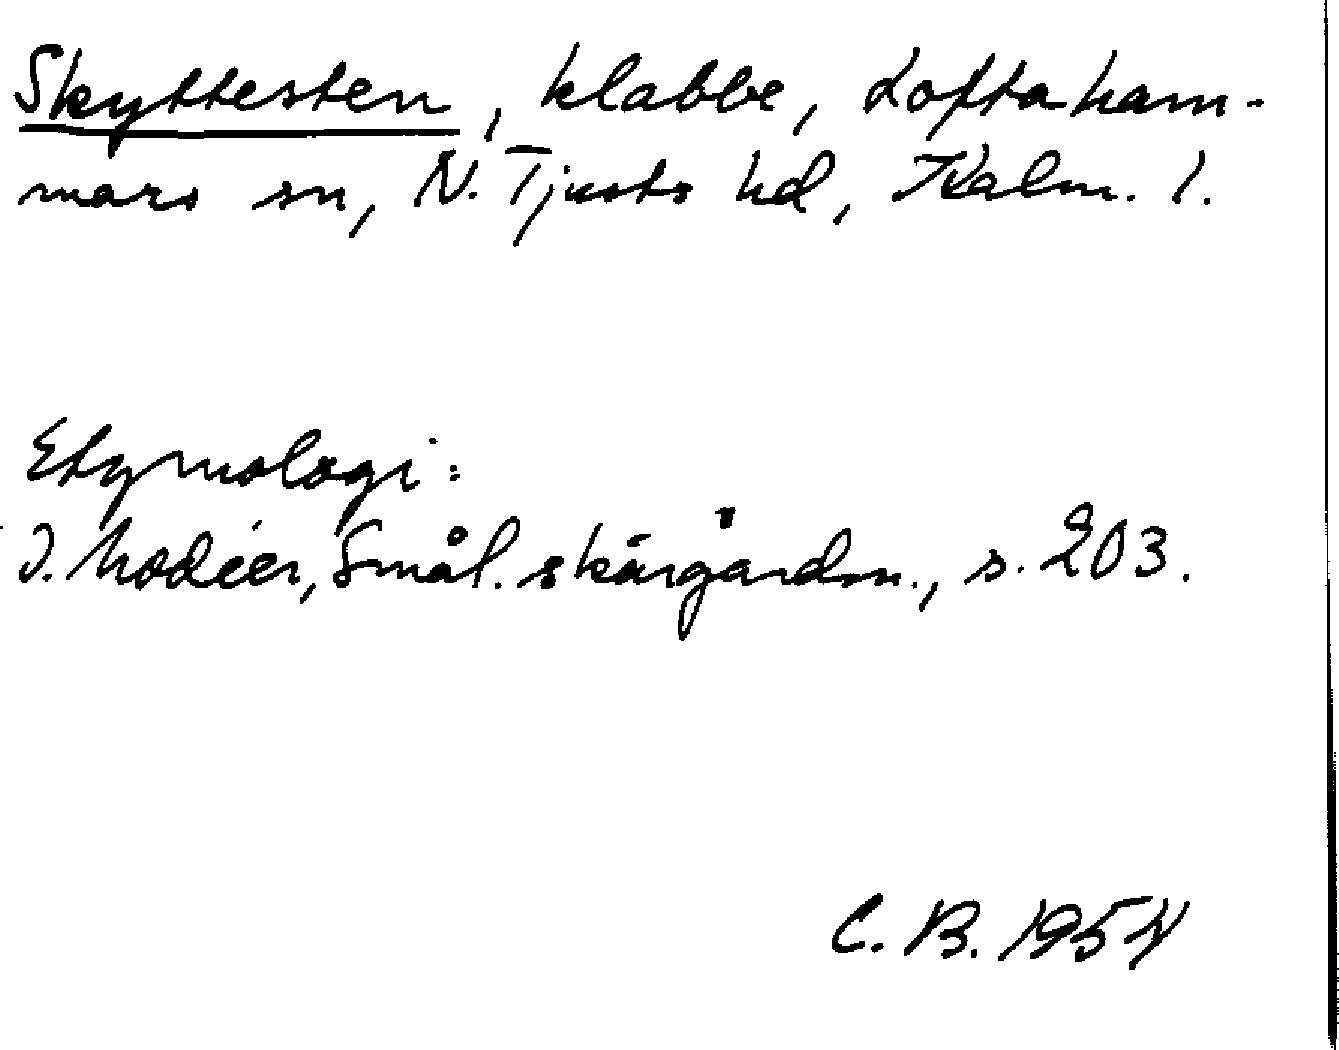 Skyttesten, klabbe, Loftaham-
mars sn, N. Tjusts hd, Kalm. l.
Etymologi:
I. Modéer, Smål. skärgårdsn., s. 203.
C. B. 1954